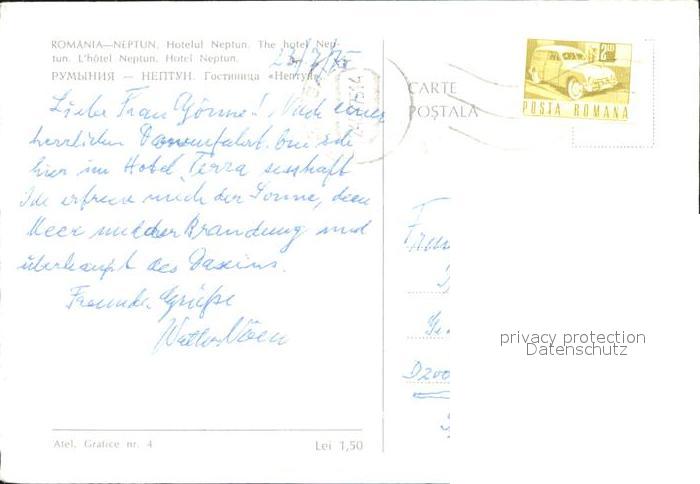 ROMÂNIA—NEPTUN. Hotelul Neptun. The hotel Nep-
tun. L'hôtel Neptun. Hotel Neptun.
РУМЫНИЯ — НЕПТУН. Гостиница «Нептун»
23/7/75
CARTE
POŞTALĂ
POSTA ROMANA
Liebe Frau Nach einer
herrlichen bin ich
hier im Hotel Terra sesshaft
Ich erfreue mich der Sonne, dem
Meer und der Brandung und
überhaupt des Daseins.
Freundl. Grüße
Frau
D 200
privacy protection
Datenschutz
Atel. Grafice nr. 4
Lei 1,50